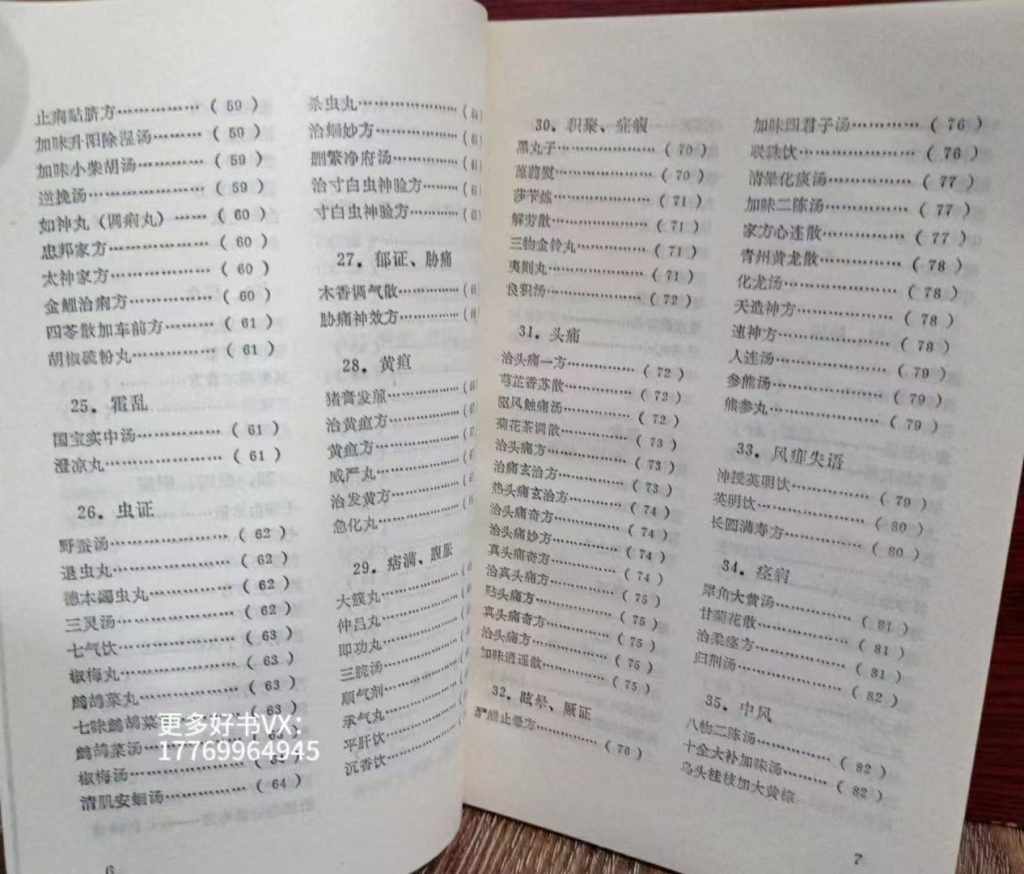 止痢贴脐方……………( 59 )
加味升阳除湿汤………( 59 )
加味小柴胡汤…………( 59 )
逆挽汤…………………( 59 )
如神丸（调痢丸）……( 60 )
忠邦家方………………( 60 )
太神家方………………( 60 )
金鲤治痢方……………( 60 )
四苓散加车前方………( 61 )
胡椒硫粉丸……………( 61 )
25．霍乱
国宝实中汤……………( 61 )
澄凉丸…………………( 61 )
26．虫证
野蚕汤…………………( 62 )
退虫丸…………………( 62 )
德本蠲虫丸……………( 62 )
三灵汤…………………( 62 )
七气饮…………………( 63 )
椒梅丸…………………( 63 )
鹧鸪菜丸………………( 63 )
七味鹧鸪菜
鹧鸪菜汤
椒梅汤
清肌安蛔汤……………( 64 )
6
杀虫丸…………………
治蛔妙方………………
删繁净府汤……………
治寸白虫神验方………
寸白虫神验方…………
27．郁证、胁痛
木香调气散……………
胁痛神效方……………
28．黄疸
猪膏发煎………………
治黄疸方………………
黄疸方…………………
威严丸…………………
治发黄方………………
急化丸…………………
29．痞满、腹胀
大簇丸…………………
仲吕丸…………………
即功丸…………………
三脘汤…………………
顺气剂…………………
承气丸…………………
平肝饮…………………
沉香饮…………………
30．积聚、症瘕
黑丸子…………………( 70 )
熨………………………( 70 )
莎芐炼…………………( 71 )
解劳散…………………( 71 )
三物金铃丸……………( 71 )
夷则丸…………………( 71 )
良枳汤…………………( 72 )
31．头痛
治头痛一方……………( 72 )
芎芷香苏散……………( 72 )
驱风触痛汤……………( 72 )
菊花茶调散……………( 73 )
治头痛方………………( 73 )
治痛玄治方……………( 73 )
热头痛玄治方…………( 74 )
治头痛奇方……………( 74 )
治头痛妙方……………( 74 )
真头痛奇方……………( 74 )
治真头痛方……………( 75 )
贴头痛方………………( 75 )
真头痛奇方……………( 75 )
治头痛方………………( 75 )
加味逍遥散……………( 75 )
32．眩晕、厥证
醋止晕方………………( 76 )
加味四君子汤…………( 76 )
联珠饮…………………( 76 )
清晕化痰汤……………( 77 )
加味二陈汤……………( 77 )
家方心连散……………( 77 )
青州黄龙散……………( 78 )
化龙汤…………………( 78 )
天造神方………………( 78 )
速神方…………………( 78 )
人连汤…………………( 79 )
参熊汤…………………( 79 )
熊参丸…………………( 79 )
33．风痱失语
神授英明饮……………( 79 )
英明饮…………………( 80 )
长圆满寿方……………( 80 )
34．痉病
犀角大黄汤……………( 81 )
甘菊花散………………( 81 )
治柔痉方………………( 81 )
归荆汤…………………( 82 )
35．中风
八物二陈汤……………( 82 )
十全大补加味汤………( 82 )
乌头桂枝加大黄棕
7
更多好书VX：
17769964945